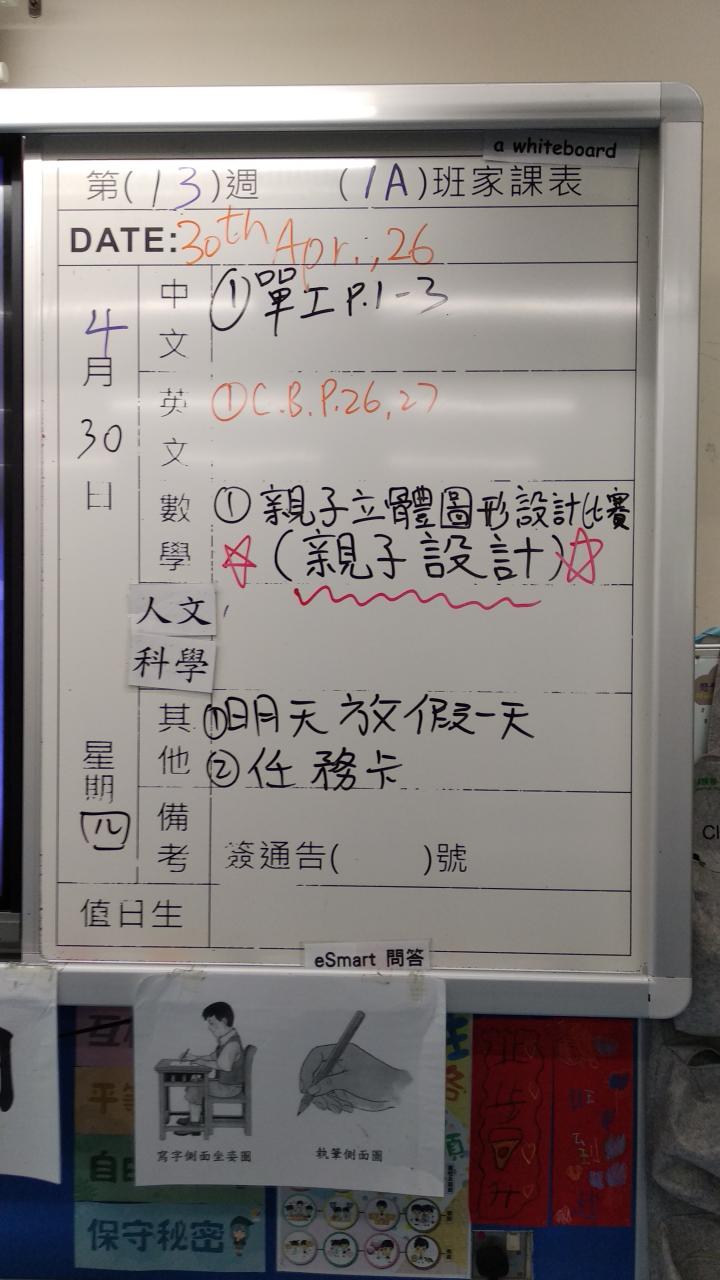 a whiteboard
第(13)週 (1A)班家課表
DATE:30th Apr.,26
4月30日
星期四
中文
①單工 P.1-3
英文
①C.B.P.26,27
數學
①親子立體圖形設計比賽
☆(親子設計)☆
人文科學
其他
①明天放假一天
②任務卡
備考
簽通告( )號
值日生
eSmart 問答
寫字側面坐姿圖
執筆側面圖
保守秘密